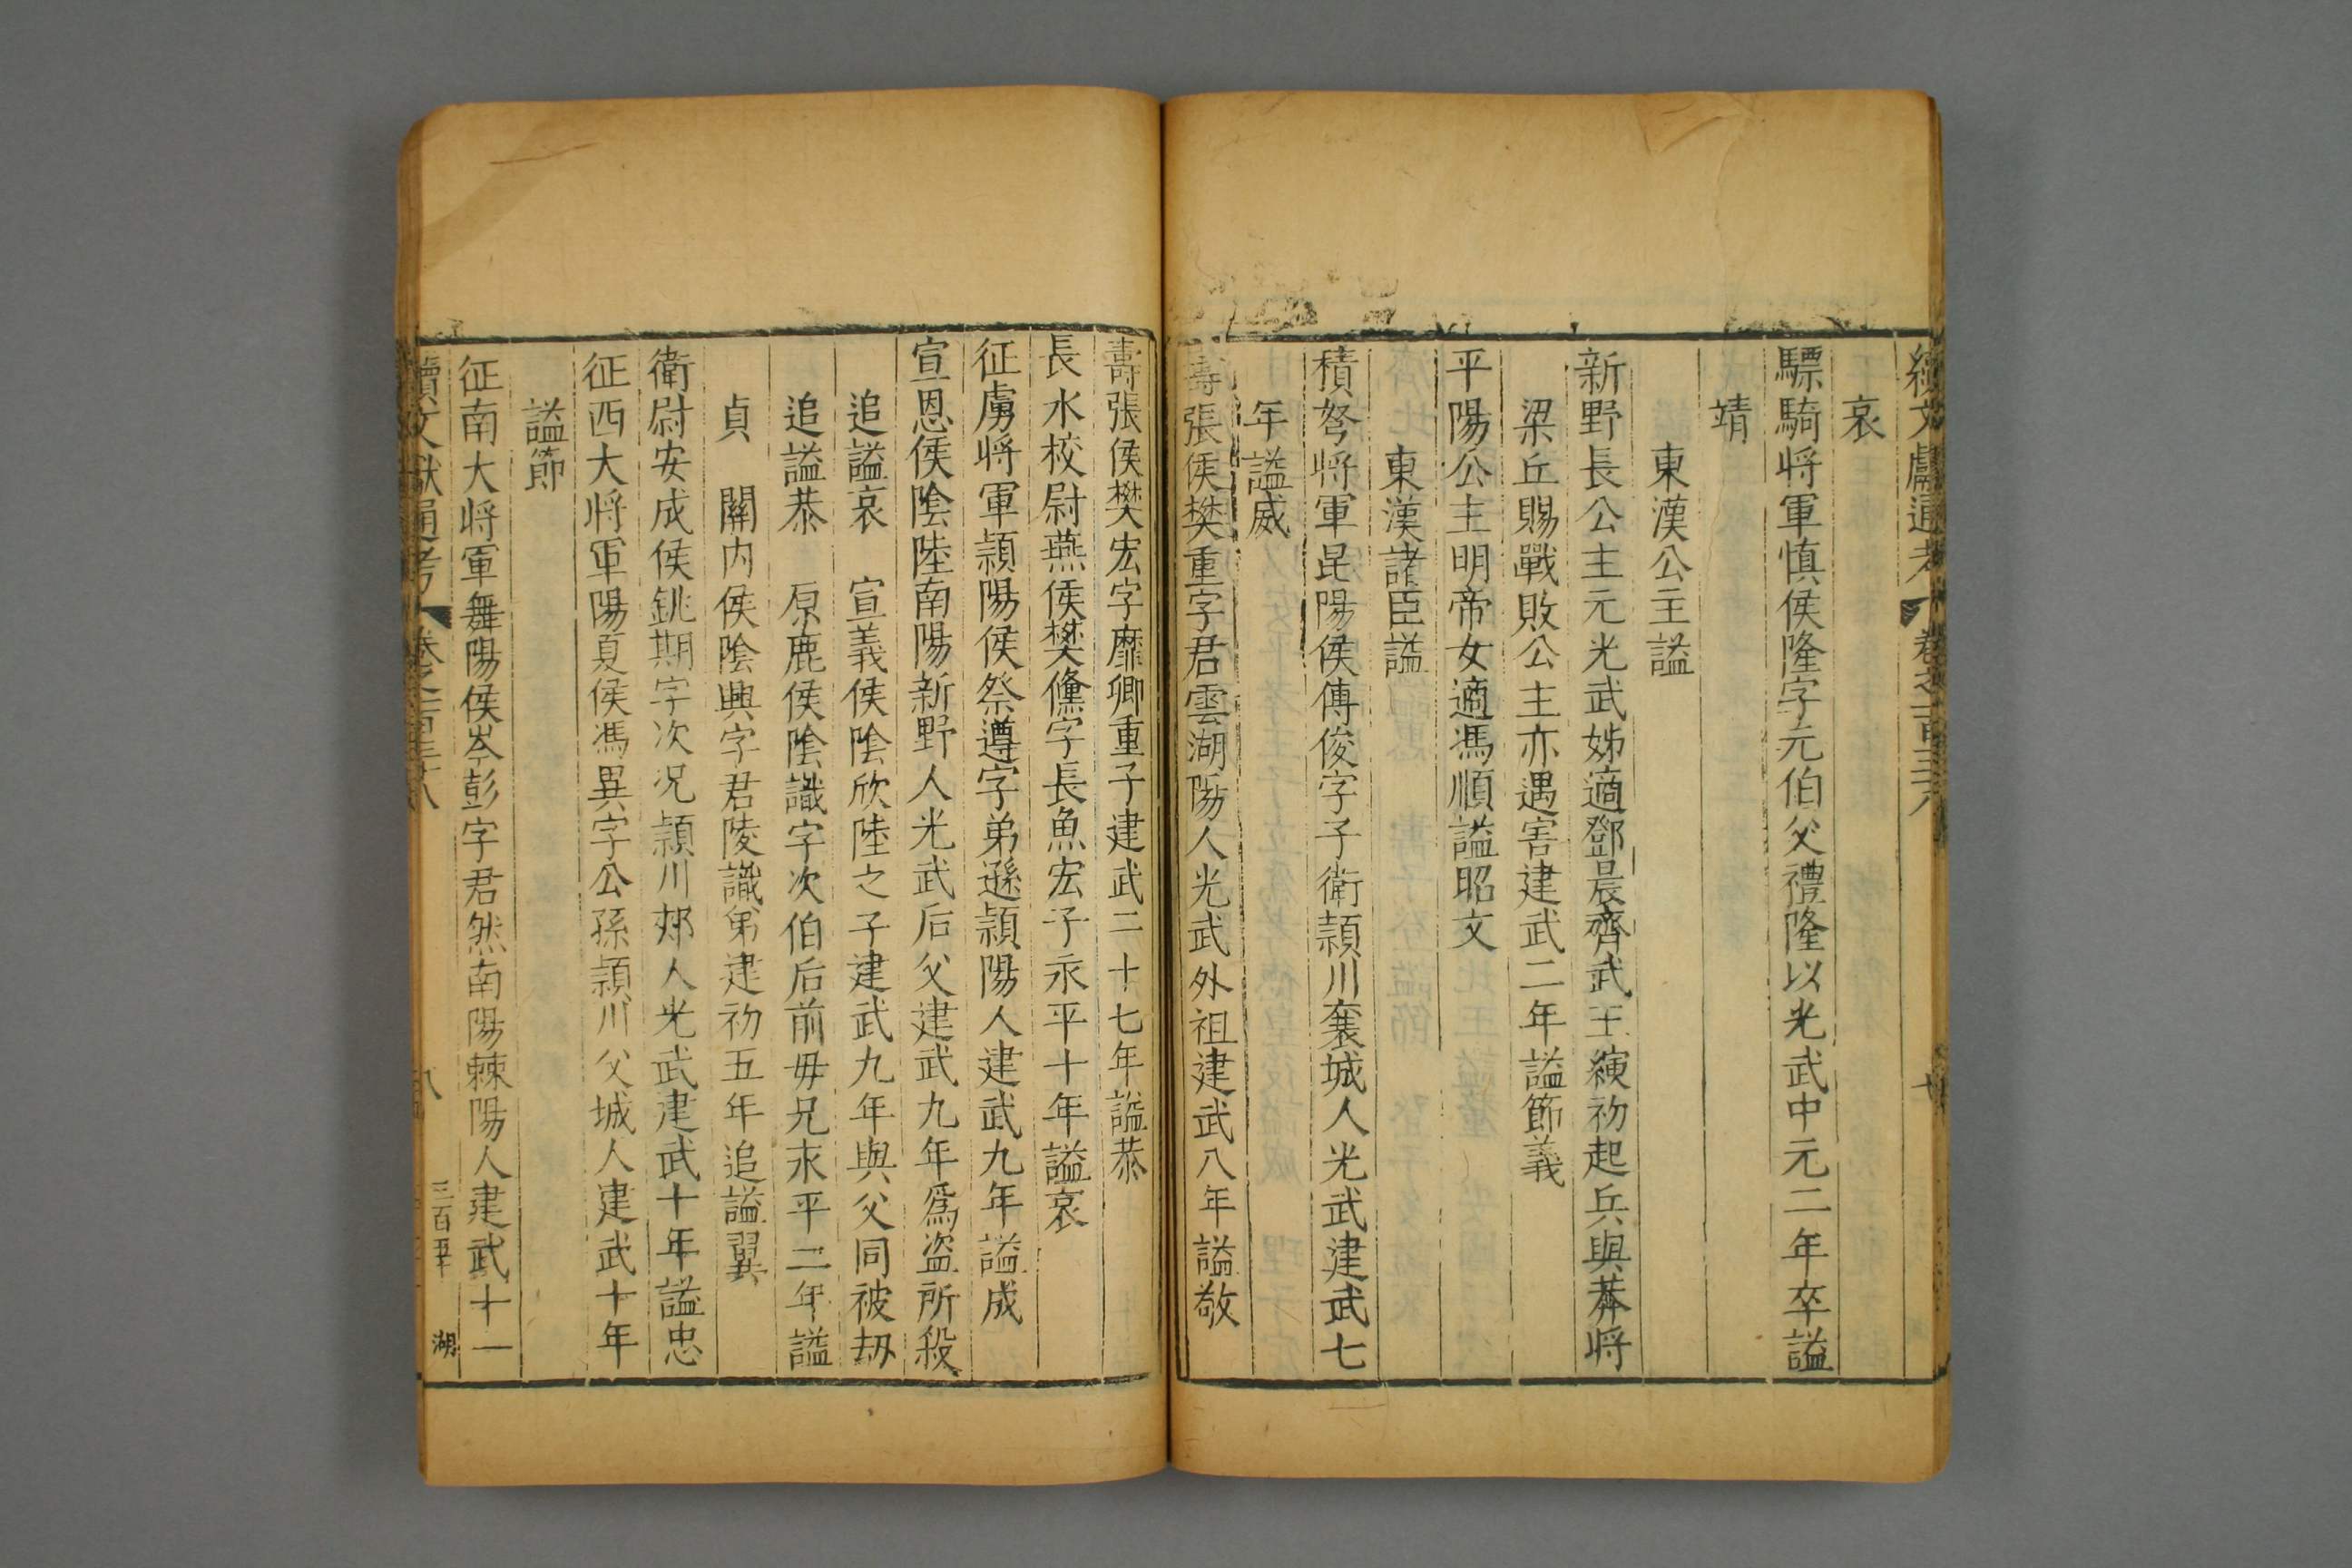 續文獻通考 卷之一百三六
哀
驃騎將軍慎侯隆字元伯父禮隆以光武中元二年卒謚
靖
東漢公主謚
新野長公主元光武姊適鄧晨齊武王縯初起兵與莽將
梁丘賜戰敗公主亦遇害建武二年謚節義
平陽公主明帝女適馮順謚昭文
東漢諸臣謚
積弩將軍昆陽侯傅俊字子衛頴川襄城人光武建武七
年謚威
壽張侯樊重字君雲湖陽人光武外祖建武八年謚敬
壽張侯樊宏字靡卿重子建武二十七年謚恭
長水校尉燕侯樊儵字長魚宏子永平十年謚哀
征虜將軍頴陽侯祭遵字弟遜頴陽人建武九年謚成
宣恩侯陰陸南陽新野人光武后父建武九年為盜所殺
追謚哀 宣義侯陰欣陸之子建武九年與父同被刼
追謚恭 原鹿侯陰識字次伯后前毋兄永平二年謚
貞 關內侯陰興字君陵識弟建初五年追謚翼
衛尉安成侯銚期字次况頴川郟人光武建武十年謚忠
征西大將軍陽夏侯馮異字公孫頴川父城人建武十年
謚節
征南大將軍舞陽侯岑彭字君然南陽棘陽人建武十一
續文獻通考 卷之一百三十八 八 三百五十 湖